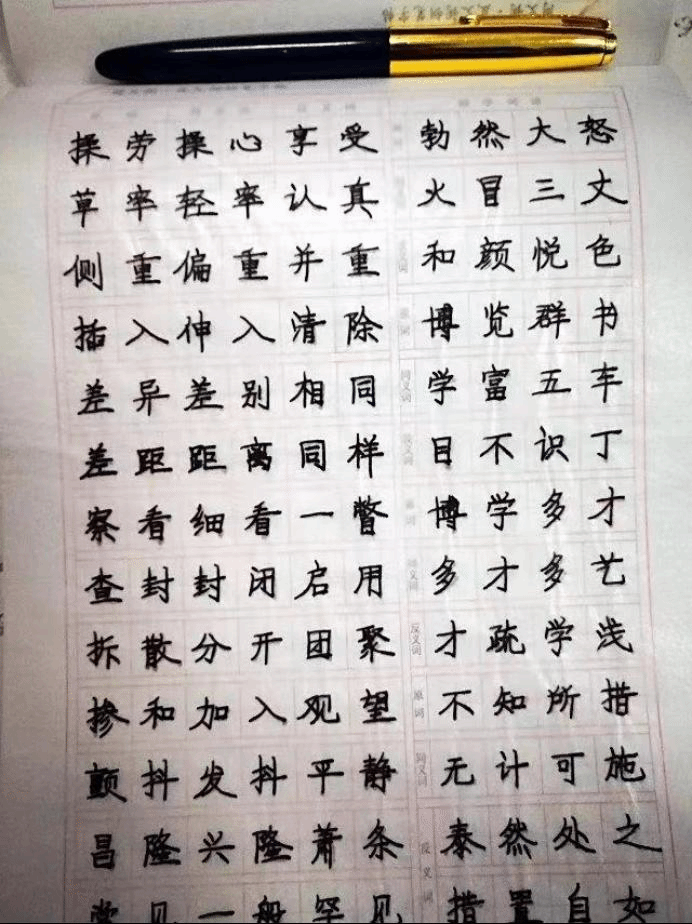 操劳操心享受 勃然大怒
草率轻率认真 火冒三丈
侧重偏重并重 和颜悦色
插入伸入清除 博览群书
差异差别相同 学富五车
差距距离同样 目不识丁
察看细看一瞥 博学多才
查封封闭启用 多才多艺
拆散分开团聚 反义词 才疏学浅
掺和加入观望 原词 不知所措
颤抖发抖平静 同义词 无计可施
昌隆兴隆萧条 反义词 泰然处之
常见一般罕见 措置自如